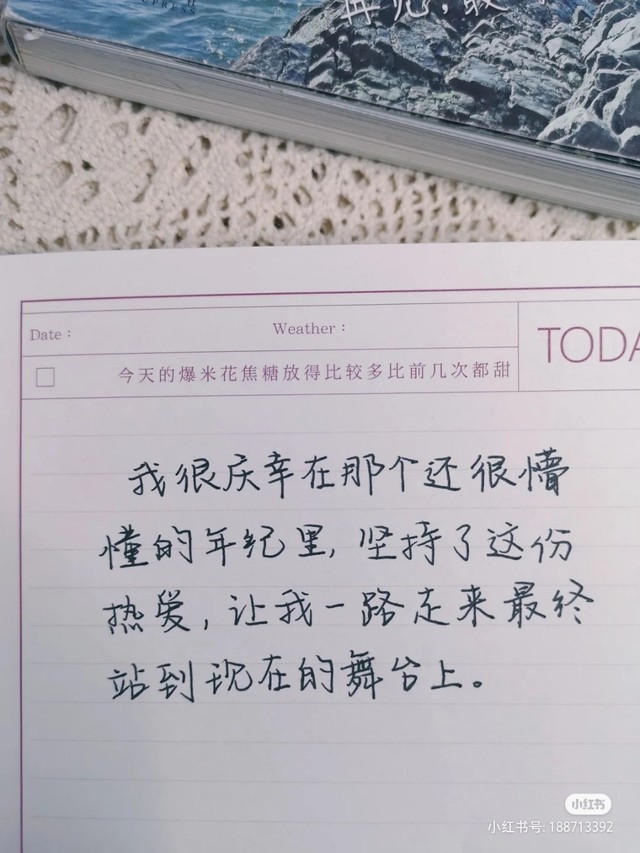 PRESS
再见,
Date：
Weather：
TODA
今天的爆米花焦糖放得比较多比前几次都甜
我很庆幸在那个还很懵
懂的年纪里,坚持了这份
热爱,让我一路走来最终
站到现在的舞台上。
小红书
小红书号: 188713392